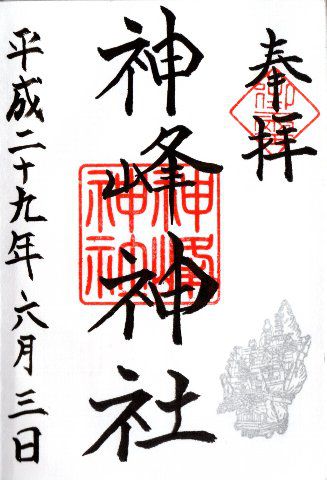 奉拝
神峰神社
神峰神社
平成二十九年六月三日